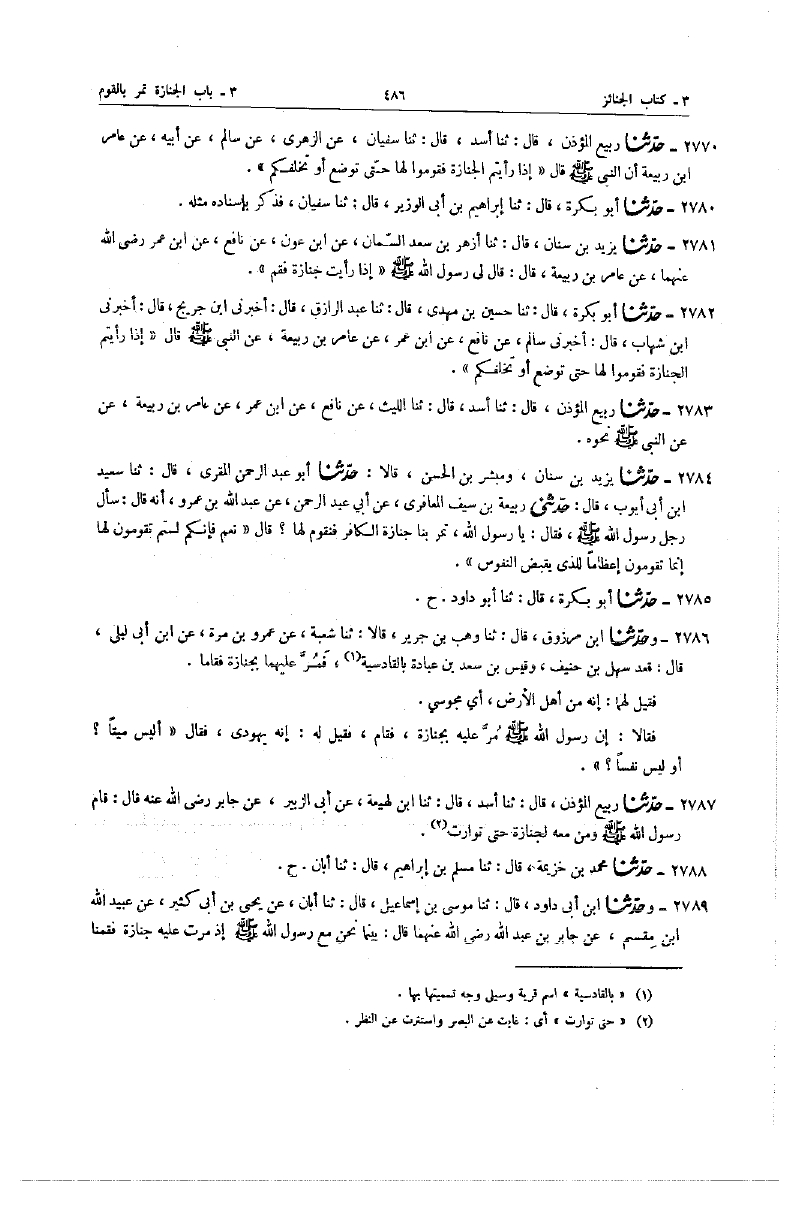 ٣ ـ كتاب الجنائز ٤٨٦ ٣ ـ باب الجنازة تمر بالقوم
٢٧٧٠ ـ حدّثنا ربيع المؤذن ، قال : ثنا أسد ، قال : ثنا سفيان ، عن الزهرى ، عن سالم ، عن أبيه ، عن عامر
ابن ربيعة أن النبي ﷺ قال « إذا رأيتم الجنازة فقوموا لها حتّى توضع أو تخلفكم » .
٢٧٨٠ ـ حدّثنا أبو بكرة ، قال : ثنا إبراهيم بن أبى الوزير ، قال : ثنا سفيان ، فذكر بإسناده مثله .
٢٧٨١ ـ حدّثنا يزيد بن سنان ، قال : ثنا أزهر بن سعد السّمان ، عن ابن عون ، عن نافع ، عن ابن عمر رضى الله
عنهما ، عن عامر بن ربيعة ، قال : قال لى رسول الله ﷺ « إذا رأيت جنازة فقم » .
٢٧٨٢ ـ حدّثنا أبو بكرة ، قال : ثنا حسين بن مهدى ، قال : ثنا عبد الرازق ، قال : أخبرنى ابن جريج ، قال : أخبرنى
ابن شهاب ، قال : أخبرنى سالم ، عن نافع ، عن ابن عمر ، عن عامر بن ربيعة ، عن النبي ﷺ قال « إذا رأيتم
الجنازة فقوموا لها حتى توضع أو تخلفكم » .
٢٧٨٣ ـ حدّثنا ربيع المؤذن ، قال : ثنا أسد ، قال : ثنا الليث ، عن نافع ، عن ابن عمر ، عن عامر بن ربيعة ، عن
عن النبي ﷺ نحوه .
٢٧٨٤ ـ حدّثنا يزيد بن سنان ، ومبشر بن الحسن ، قالا : حدّثنا أبو عبد الرحمن المقرى ، قال : ثنا سعيد
ابن أبى أيوب ، قال : حدّثنى ربيعة بن سيف المعافرى ، عن أبي عبد الرحمن ، عن عبد الله بن عمرو ، أنه قال : سأل
رجل رسول الله ﷺ ، فقال : يا رسول الله ، تمر بنا جنازة الكافر فنقوم لها ؟ قال « نعم فإنكم لستم تقومون لها
إنما تقومون إعظاماً للذى يقبض النفوس » .
٢٧٨٥ ـ حدّثنا أبو بكرة ، قال : ثنا أبو داود . ح .
٢٧٨٦ ـ وحدّثنا ابن مرزوق ، قال : ثنا وهب بن جرير ، قالا : ثنا شعبة ، عن عمرو بن مرة ، عن ابن أبى ليلى ،
قال : قعد سهل بن حنيف ، وقيس بن سعد بن عبادة بالقادسية (١) ، فَمُرَّ عليهما بجنازة فقاما .
فقيل لهما : إنه من أهل الأرض ، أي مجوسي .
فقالا : إن رسول الله ﷺ مُرَّ عليه بجنازة ، فقام ، فقيل له : إنه يهودى ، فقال « أليس ميقاً ؟
أو ليس نفساً ؟ » .
٢٧٨٧ ـ حدّثنا ربيع المؤذن ، قال : ثنا أسد ، قال : ثنا ابن لهيعة ، عن أبى الزبير ، عن جابر رضى الله عنه قال : قام
رسول الله ﷺ ومن معه لجنازة حتى توارت (٢) .
٢٧٨٨ ـ حدّثنا محمد بن خزيمة ، قال : ثنا مسلم بن إبراهيم ، قال : ثنا أبان . ح .
٢٧٨٩ ـ وحدّثنا ابن أبى داود ، قال : ثنا موسى بن إسماعيل ، قال : ثنا أبان ، عن يحيى بن أبى كثير ، عن عبيد الله
ابن مِقسم ، عن جابر بن عبد الله رضى الله عنهما قال : بينما نحن مع رسول الله ﷺ إذ مرت عليه جنازة فقمنا
(١) « بالقادسية » اسم قرية وسيلى وجه تسميتها بها .
(٢) « حتى توارت » أى : غابت عن البصر واستترت عن النظر .